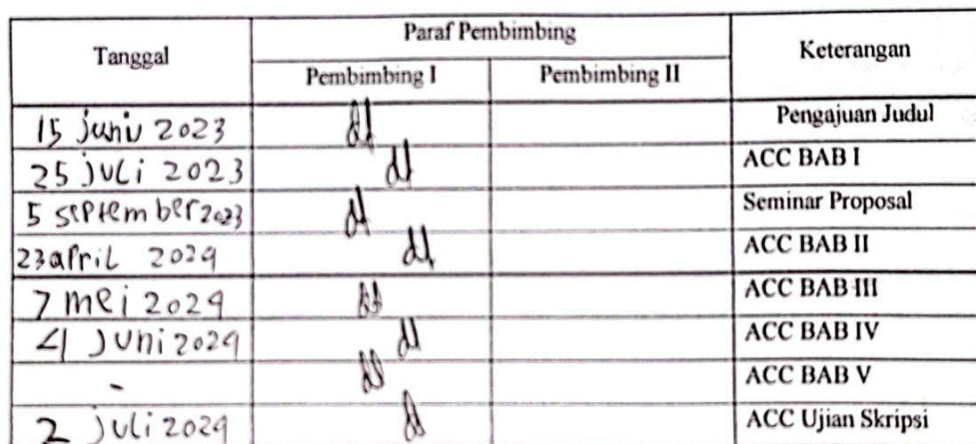 Tanggal Paraf Pembimbing Keterangan
Pembimbing I Pembimbing II
15 juni 2023 Pengajuan Judul
25 juli 2023 ACC BAB I
5 september 2023 Seminar Proposal
23 april 2024 ACC BAB II
7 mei 2024 ACC BAB III
4 juni 2024 ACC BAB IV
- ACC BAB V
2 juli 2024 ACC Ujian Skripsi